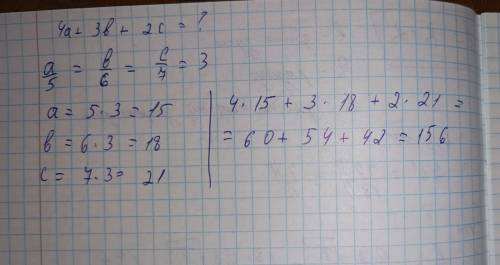 4a + 3в + 2c = ?
a/5 = в/6 = c/7 = 3
a = 5·3 = 15
в = 6·3 = 18
c = 7·3 = 21
4·15 + 3·18 + 2·21 =
= 60 + 54 + 42 = 156